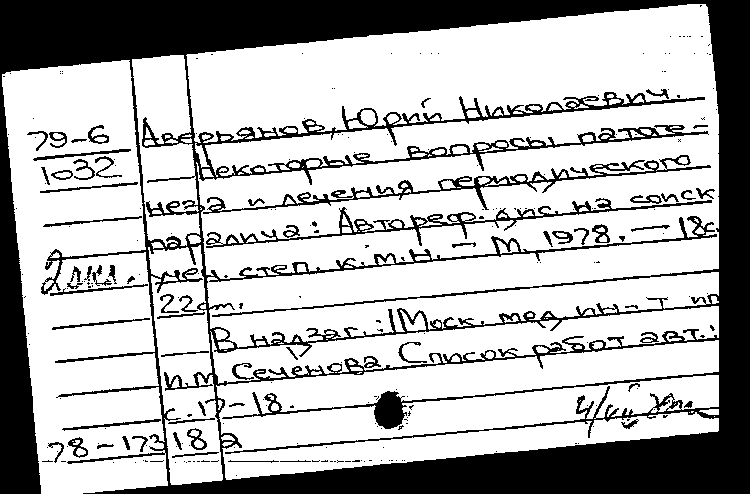 79-6 Аверьянов, Юрий Николаевич.
1032 Некоторые вопросы патоге=
неза и лечения периодического
паралича: Автореф. дис. на соиск
2экз. учен. степ. к.м.н. — М., 1978. — 18с.
22см.
В надзаг.: 1 Моск. мед. ин-т им
И.М. Сеченова. Список работ авт.:
с. 17-18.
78-17318а